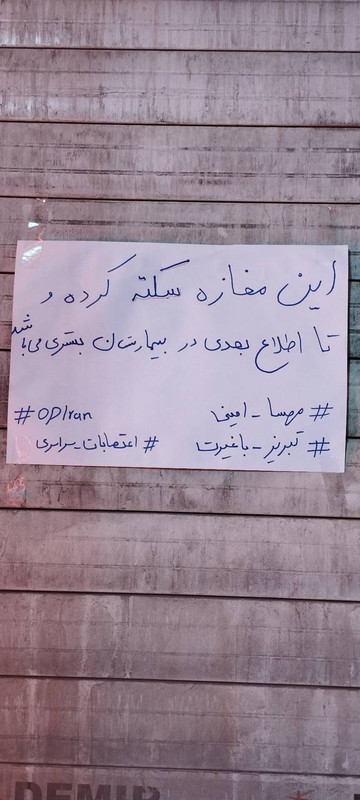 این مغازه سکته کرده و
تا اطلاع بعدی در بیمارستان بستری می‌باشد
#مهسا_امینی
#OPIran
#تبریز_باغیرت
#اعتصابات_سراسری
DEMIR